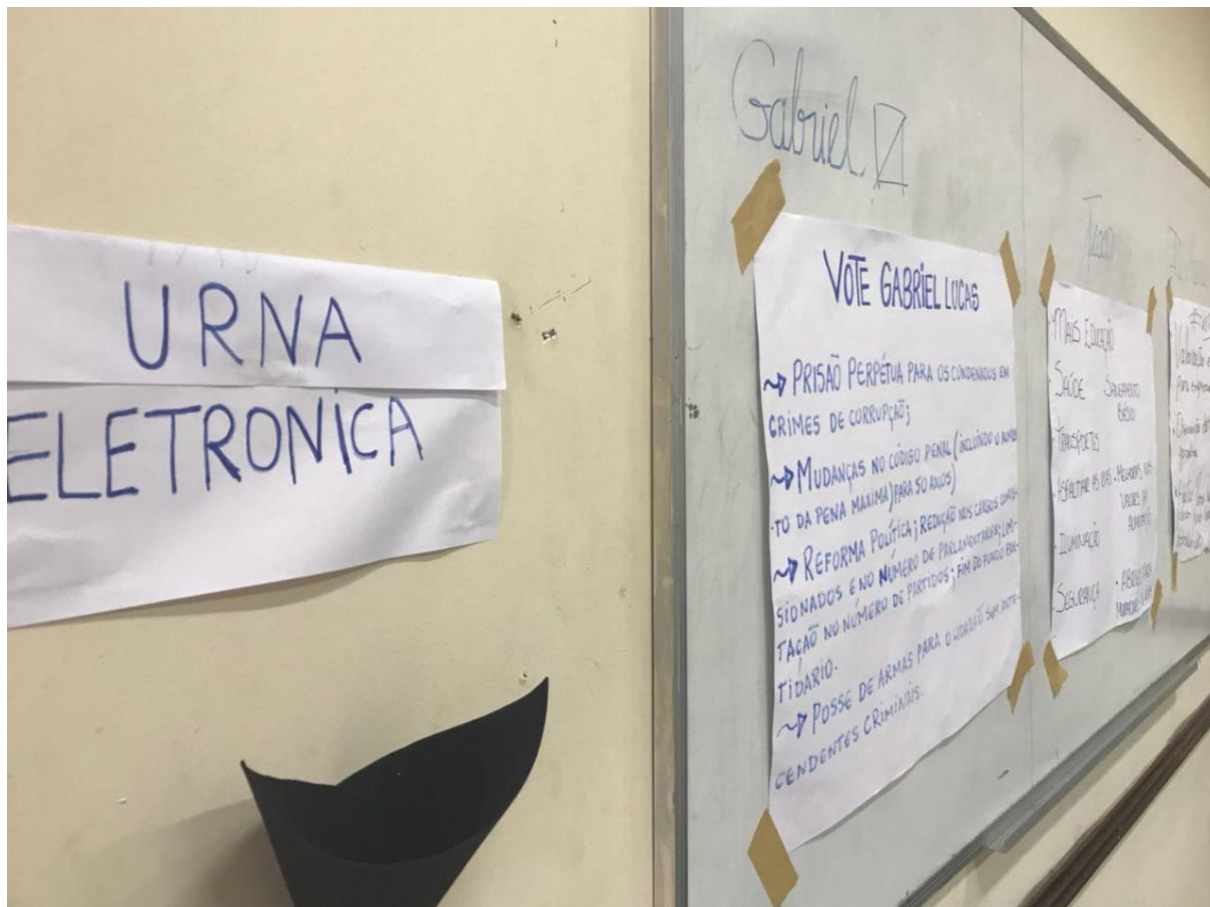 URNA
ELETRONICA
Gabriel
VOTE GABRIEL LUCAS
PRISÃO PERPÉTUA PARA OS CONDENADOS EM
CRIMES DE CORRUPÇÃO;
MUDANÇAS NO CÓDIGO PENAL (INCLUINDO O AUMEN
-TO DA PENA MAXIMA) PARA 50 ANOS)
REFORMA POLÍTICA; REDUÇÃO NOS CARGOS COMIS-
SIONADOS E NO NÚMERO DE PARLAMENTARES; LIMI-
TAÇAÕ NO NÚMERO DE PARTIDOS; FIM DO FUNDO PAR-
TIDÁRIO.
POSSE DE ARMAS PARA O CIDADÃO SEM ANTE-
CENDENTES CRIMINAIS.
MAIS
SAÚDE
SANEAMENTO
TRANSPORTES
ASFALTAR AS RUAS
ILUMINAÇÃO
SEGURANÇA